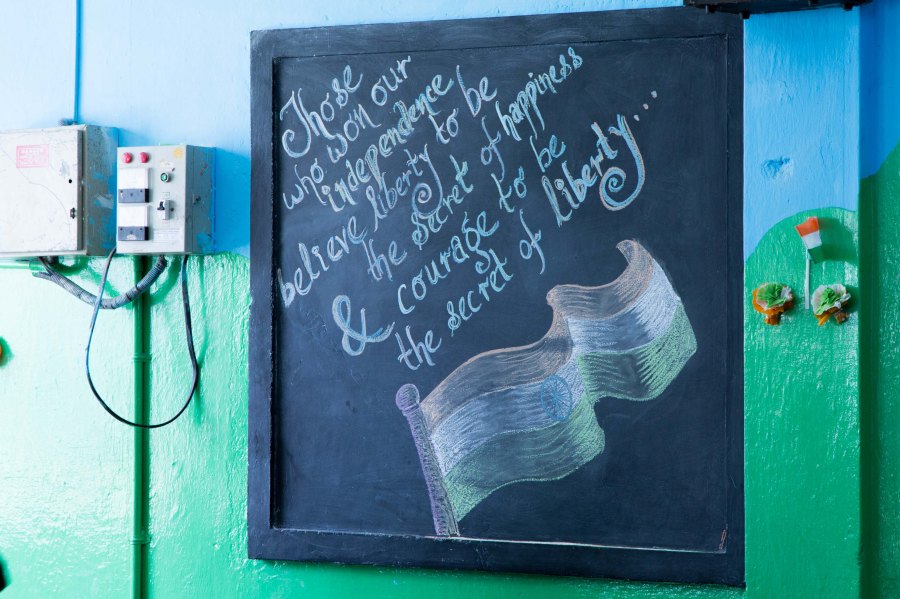 Those
who won our
independence
believe liberty to be
the secret of happiness
& courage to be
the secret of liberty...